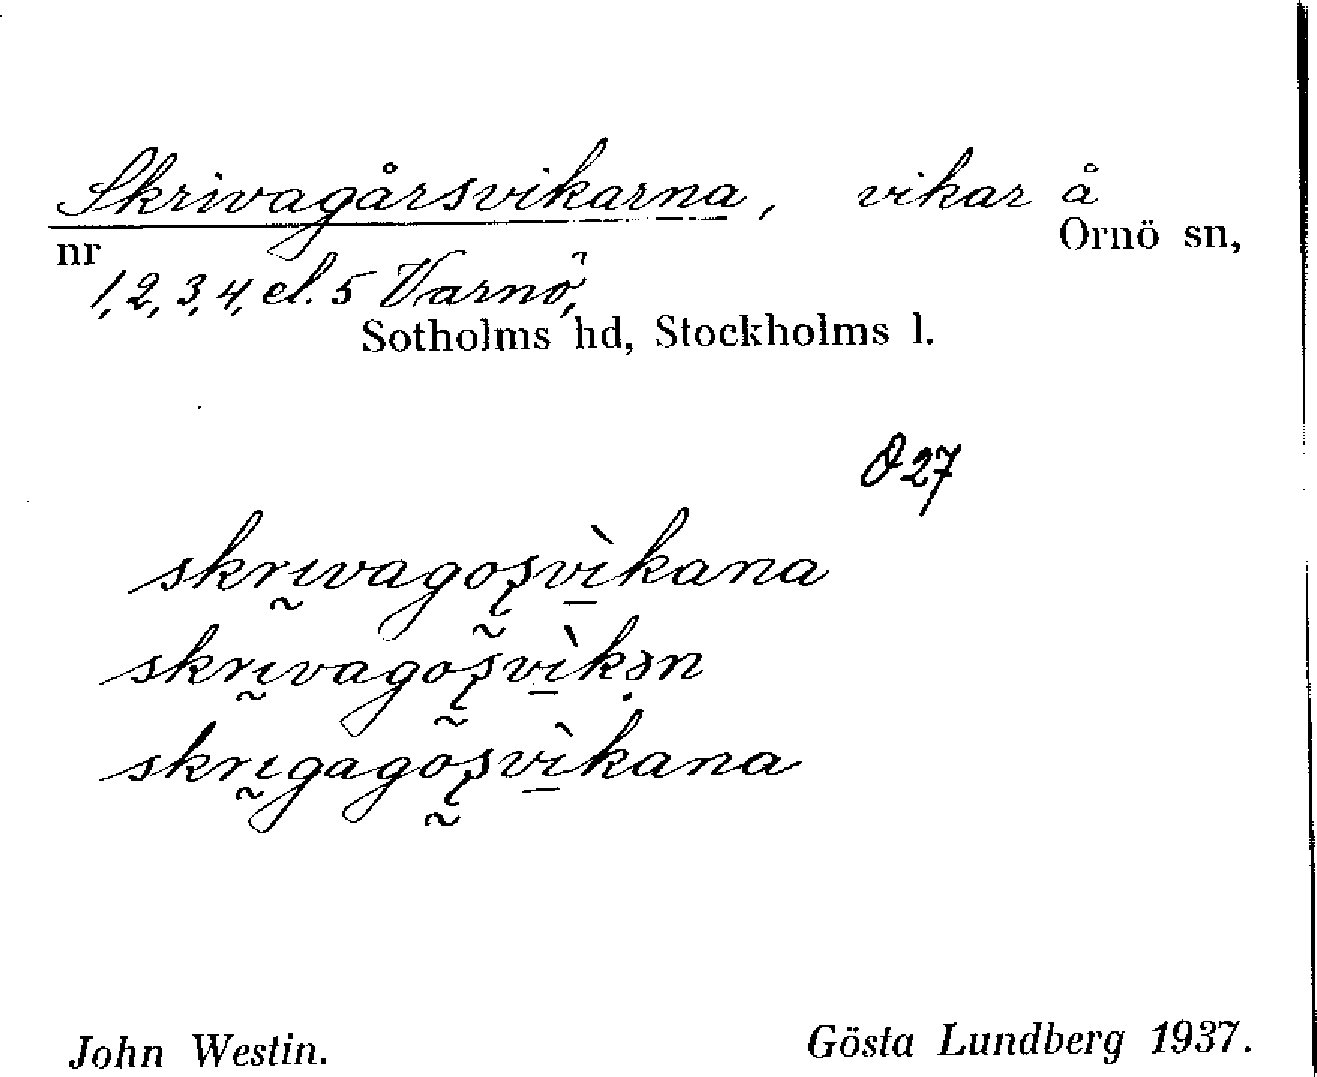 Skrivagårsvikarna, vikar å
nr Ornö sn,
1, 2, 3, 4, el. 5 Varnö,
Sotholms hd, Stockholms l.
O 27
skrı̰vagoʂ̰vì̠kana
skrı̰vagoʂ̰vì̠kə̣n
skrı̰gagoʂ̰vì̠kana
John Westin. Gösta Lundberg 1937.